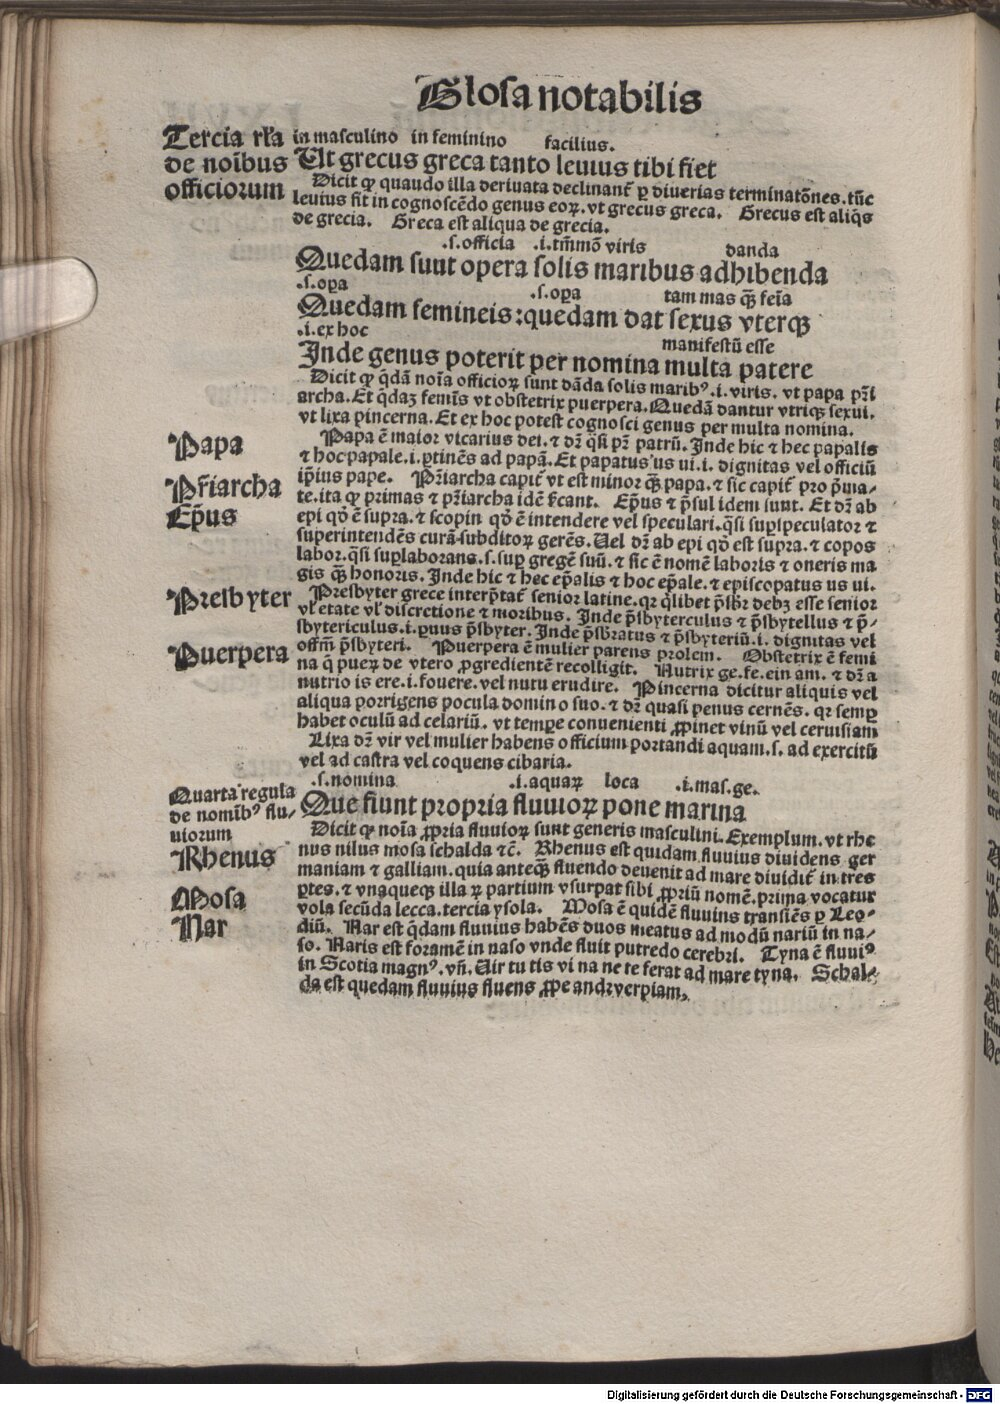 Glosa notabilis
Tercia rl'a
de noı̄bus
officiorum
in masculino in feminino facilius.
Ut grecus greca tanto leuius tibi fiet
Dicit ꝙ quando illa deriuata declinant̄ ꝑ diuersas terminatōnes. tūc
leuius fit in cognoscēdo genus eoꝝ. vt grecus greca. Grecus est aliq̄s
de grecia. Greca est aliqua de grecia.
.s. officia .i. tm̄mō viris danda
Quedam sunt opera solis maribus adhibenda
.s. oꝑa .s. oꝑa tam mas qꝫ̄ feīa
Quedam femineis: quedam dat sexus vterqꝫ
.i. ex hoc manifestū esse
Inde genus poterit per nomina multa patere
Dicit ꝙ q̄dā noı̄a officioꝝ sunt dāda solis maribꝰ .i. viris. vt papa pr̄i
archa. Et q̄daꝫ femı̄s vt obstetrix puerpera. Quedā dantur vtriqꝫ sexui.
vt lixa pincerna. Et ex hoc potest cognosci genus per multa nomina.
Papa
Papa ē maior vicarius dei. ⁊ dr̄ q̄si pr̄ patrū. Inde hic ⁊ hec papalis
⁊ hoc papale .i. ꝑtinēs ad papā. Et papatus us ui .i. dignitas vel officiū
Pr̄iarcha
ip̄ius pape. Pr̄iarcha capit̄ vt est minor qꝫ̄ papa. ⁊ sic capit̄ pro p̄ma-
te. ita ꝙ primas ⁊ pr̄iarcha idē st̄cant. Ep̄us ⁊ p̄sul idem sunt. Et dr̄ ab
Ep̄us
epi qd̄ ē supra. ⁊ scopin qd̄ ē intendere vel speculari. q̄si suꝑspeculator ⁊
superintendēs curā subditoꝝ gerēs. Uel dr̄ ab epi qd̄ est supra. ⁊ copos
labor. q̄si suꝑlaborans .s. suꝑ gregē suū. ⁊ sic ē nomē laboris ⁊ oneris ma
gis qꝫ̄ honoris. Inde hic ⁊ hec ep̄alis ⁊ hoc ep̄ale. ⁊ episcopatus us ui.
Presbyter
Presbyter grece interp̄tat̄ senior latine. qꝛ q̄libet p̄sbr̄ debꝫ esse senior
vl' etate vl' discretione ⁊ moribus. Inde p̄sbyterculus ⁊ p̄sbytellus ⁊ p̄-
sbytericulus .i. ꝑuus p̄sbyter. Inde p̄sbr̄atus ⁊ p̄sbyteriū .i. dignitas vel
Puerpera
offm̄ p̄sbyteri. Puerpera ē mulier parens prolem. Obstetrix ē femi
na q̄ pueꝝ de vtero ꝓgredientē recolligit. Nutrix ge. fe. ein am. ⁊ dr̄ a
nutrio is ere .i. fouere. vel nutu erudire. Pincerna dicitur aliquis vel
aliqua porrigens pocula domino suo. ⁊ dr̄ quasi penus cernēs. qꝛ semꝑ
habet oculū ad celariū. vt tempe conuenienti ꝓpinet vinū vel ceruisiam
Lixa dr̄ vir vel mulier habens officium portandi aquam .s. ad exercitū
vel ad castra vel coquens cibaria.
.s. nomina .i. aquaꝝ loca .i. mas. ge.
Quarta regula
de nomı̄bꝰ flu-
uiorum
Que fiunt propria fluuioꝝ pone marina
Dicit ꝙ noı̄a ꝓpria fluuioꝝ sunt generis masculini. Exemplum. vt rhe
Rhenus
nus nilus mosa schalda ⁊c̄. Rhenus est quidam fluuius diuidens ger
maniam ⁊ galliam. quia anteqꝫ̄ fluendo deuenit ad mare diuidit̄ in tres
ꝑtes. ⁊ vnaqueqꝫ illaꝝ partium vsurpat sibi ꝓpriū nomē. prima vocatur
Mosa
vola secūda lecca. tercia ysola. Mosa ē quidē fluuius transiēs ꝑ Leo-
Nar
diū. Nar est q̄dam fluuius habēs duos meatus ad modū nariū in na-
so. Naris est foramē in naso vnde fluit putredo cerebri. Tyna ē fluuiꝰ
in Scotia magnꝰ. vn̄. Uir tu tis vi na ne te ferat ad mare tyna. Schal-
da est quedam fluuius fluens ꝓpe andꝛverpiam.
Digitalisierung gefördert durch die Deutsche Forschungsgemeinschaft - DFG